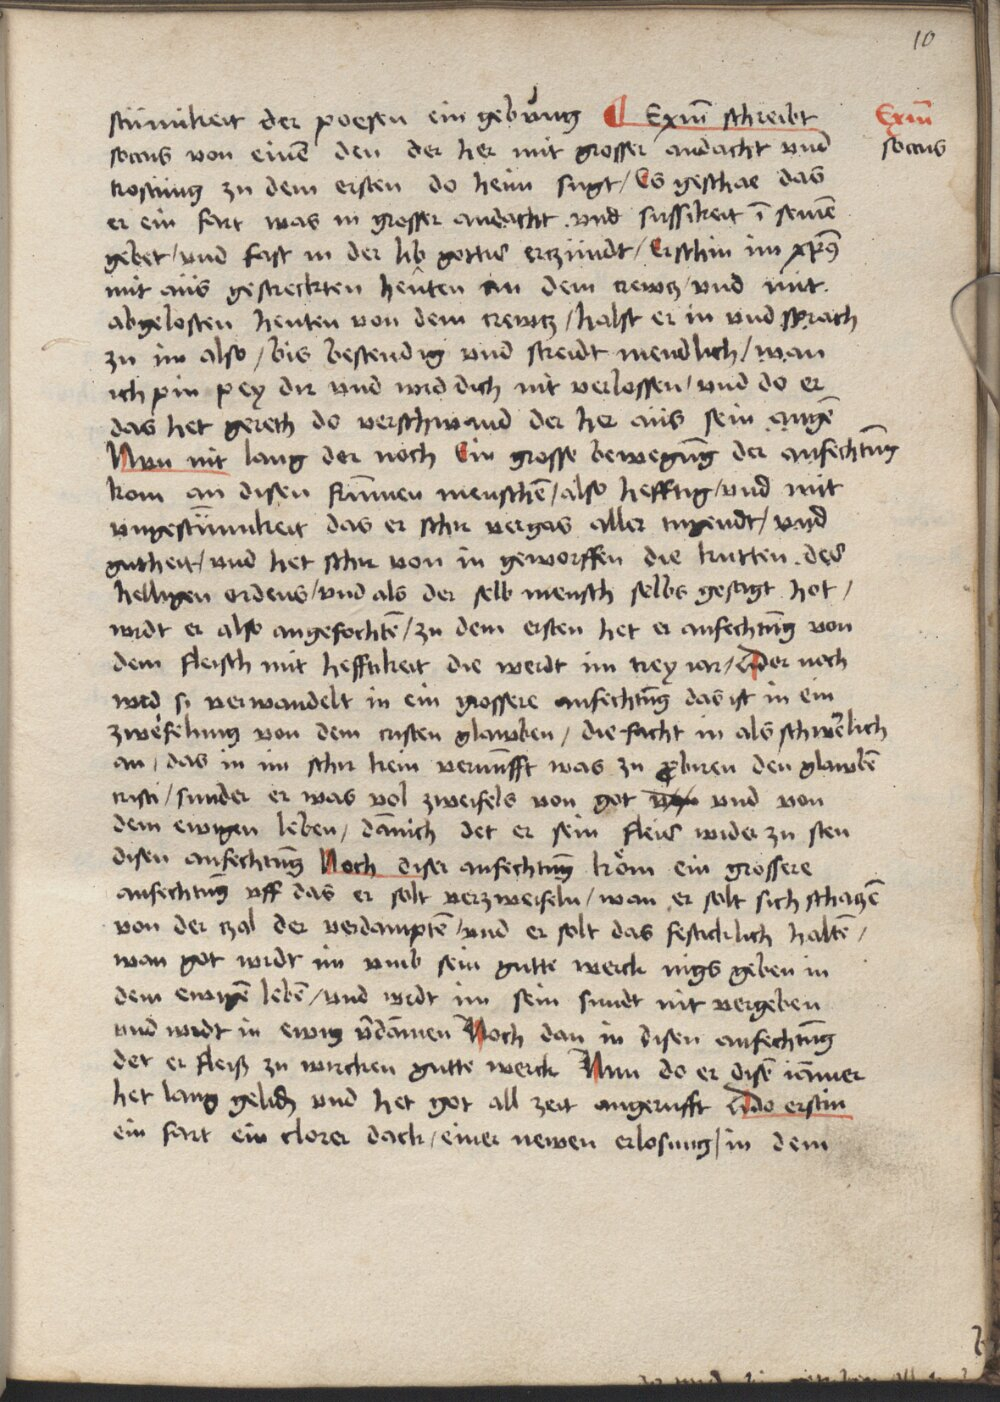 10
stümikeit der poesen ein gebung ¶ Exm̄ schreibt
Exm̄
soccus von einē den der her mit grosser andacht vnd
soccus
trostung zu dem ersten do heim sugt / Es geschae das
er ein fart was in grosser andacht vnd sussikeit ī seinē
gebet / vnd fast in der lib gottis erczündt / Erschin im xp̄s
mit aüs gestreckten henten an dem crewcz / vnd mit
abgelosten henten von dem crewcz / halst er in vnd sprach
zu im also / bis bestendig vnd streidt mendlich / wan
ich pin pey dir vnd wird dich nit verlossen / vnd do er
das het gereth do verschwand der her aüs sein augē
Nun nit lang der noch Ein grosse bewegūg der anfechtūg
kom an disen frūmen menschē / also hefftig / vnd mit
vngestümikeit das er schir vergas aller tugendt / vnd
gutheit / vnd het schir von in geworffen die kutten des
helligen ordens / vnd als der selb mensch selbs gesagt hot /
wirdt er also angefochtē / zu dem ersten het er anfechtūg von
dem fleisch mit hefftikeit die werdt im trey iar / Der noch
wird si verwandelt in ein grossere anfechtūg das ist in ein
zwefelung von dem cristen glawben / die facht in als schwerlich
an / das in im schir kein vernūfft was zu probiren den glawbē
cristi / sunder er was vol zweifels von got vnd von
dem ewigen leben / dānich det er sein fleis wider zu sten
disen anfechtūg Noch diser anfechtūg kom ein grossere
anfechtūg vff das er solt verzweifeln / wan er solt sich schaczē
von der czal der verdamptē / vnd er solt das festicklich haltē /
wan got wirdt im vmb sein gutte werck nigs geben in
dem ewigē lebē / vnd wirdt im sein sundt nit vergeben
vnd wirdt in ewig v̄dāmen Noch dan in disen anfechtūg
det er fleiß zu wircken gutte werck Nun do er disē iāmer
het lang gelidn vnd het got all zeit angerufft Do erschin
ein fart ein clorer dack / einer newen erlosung / in dem